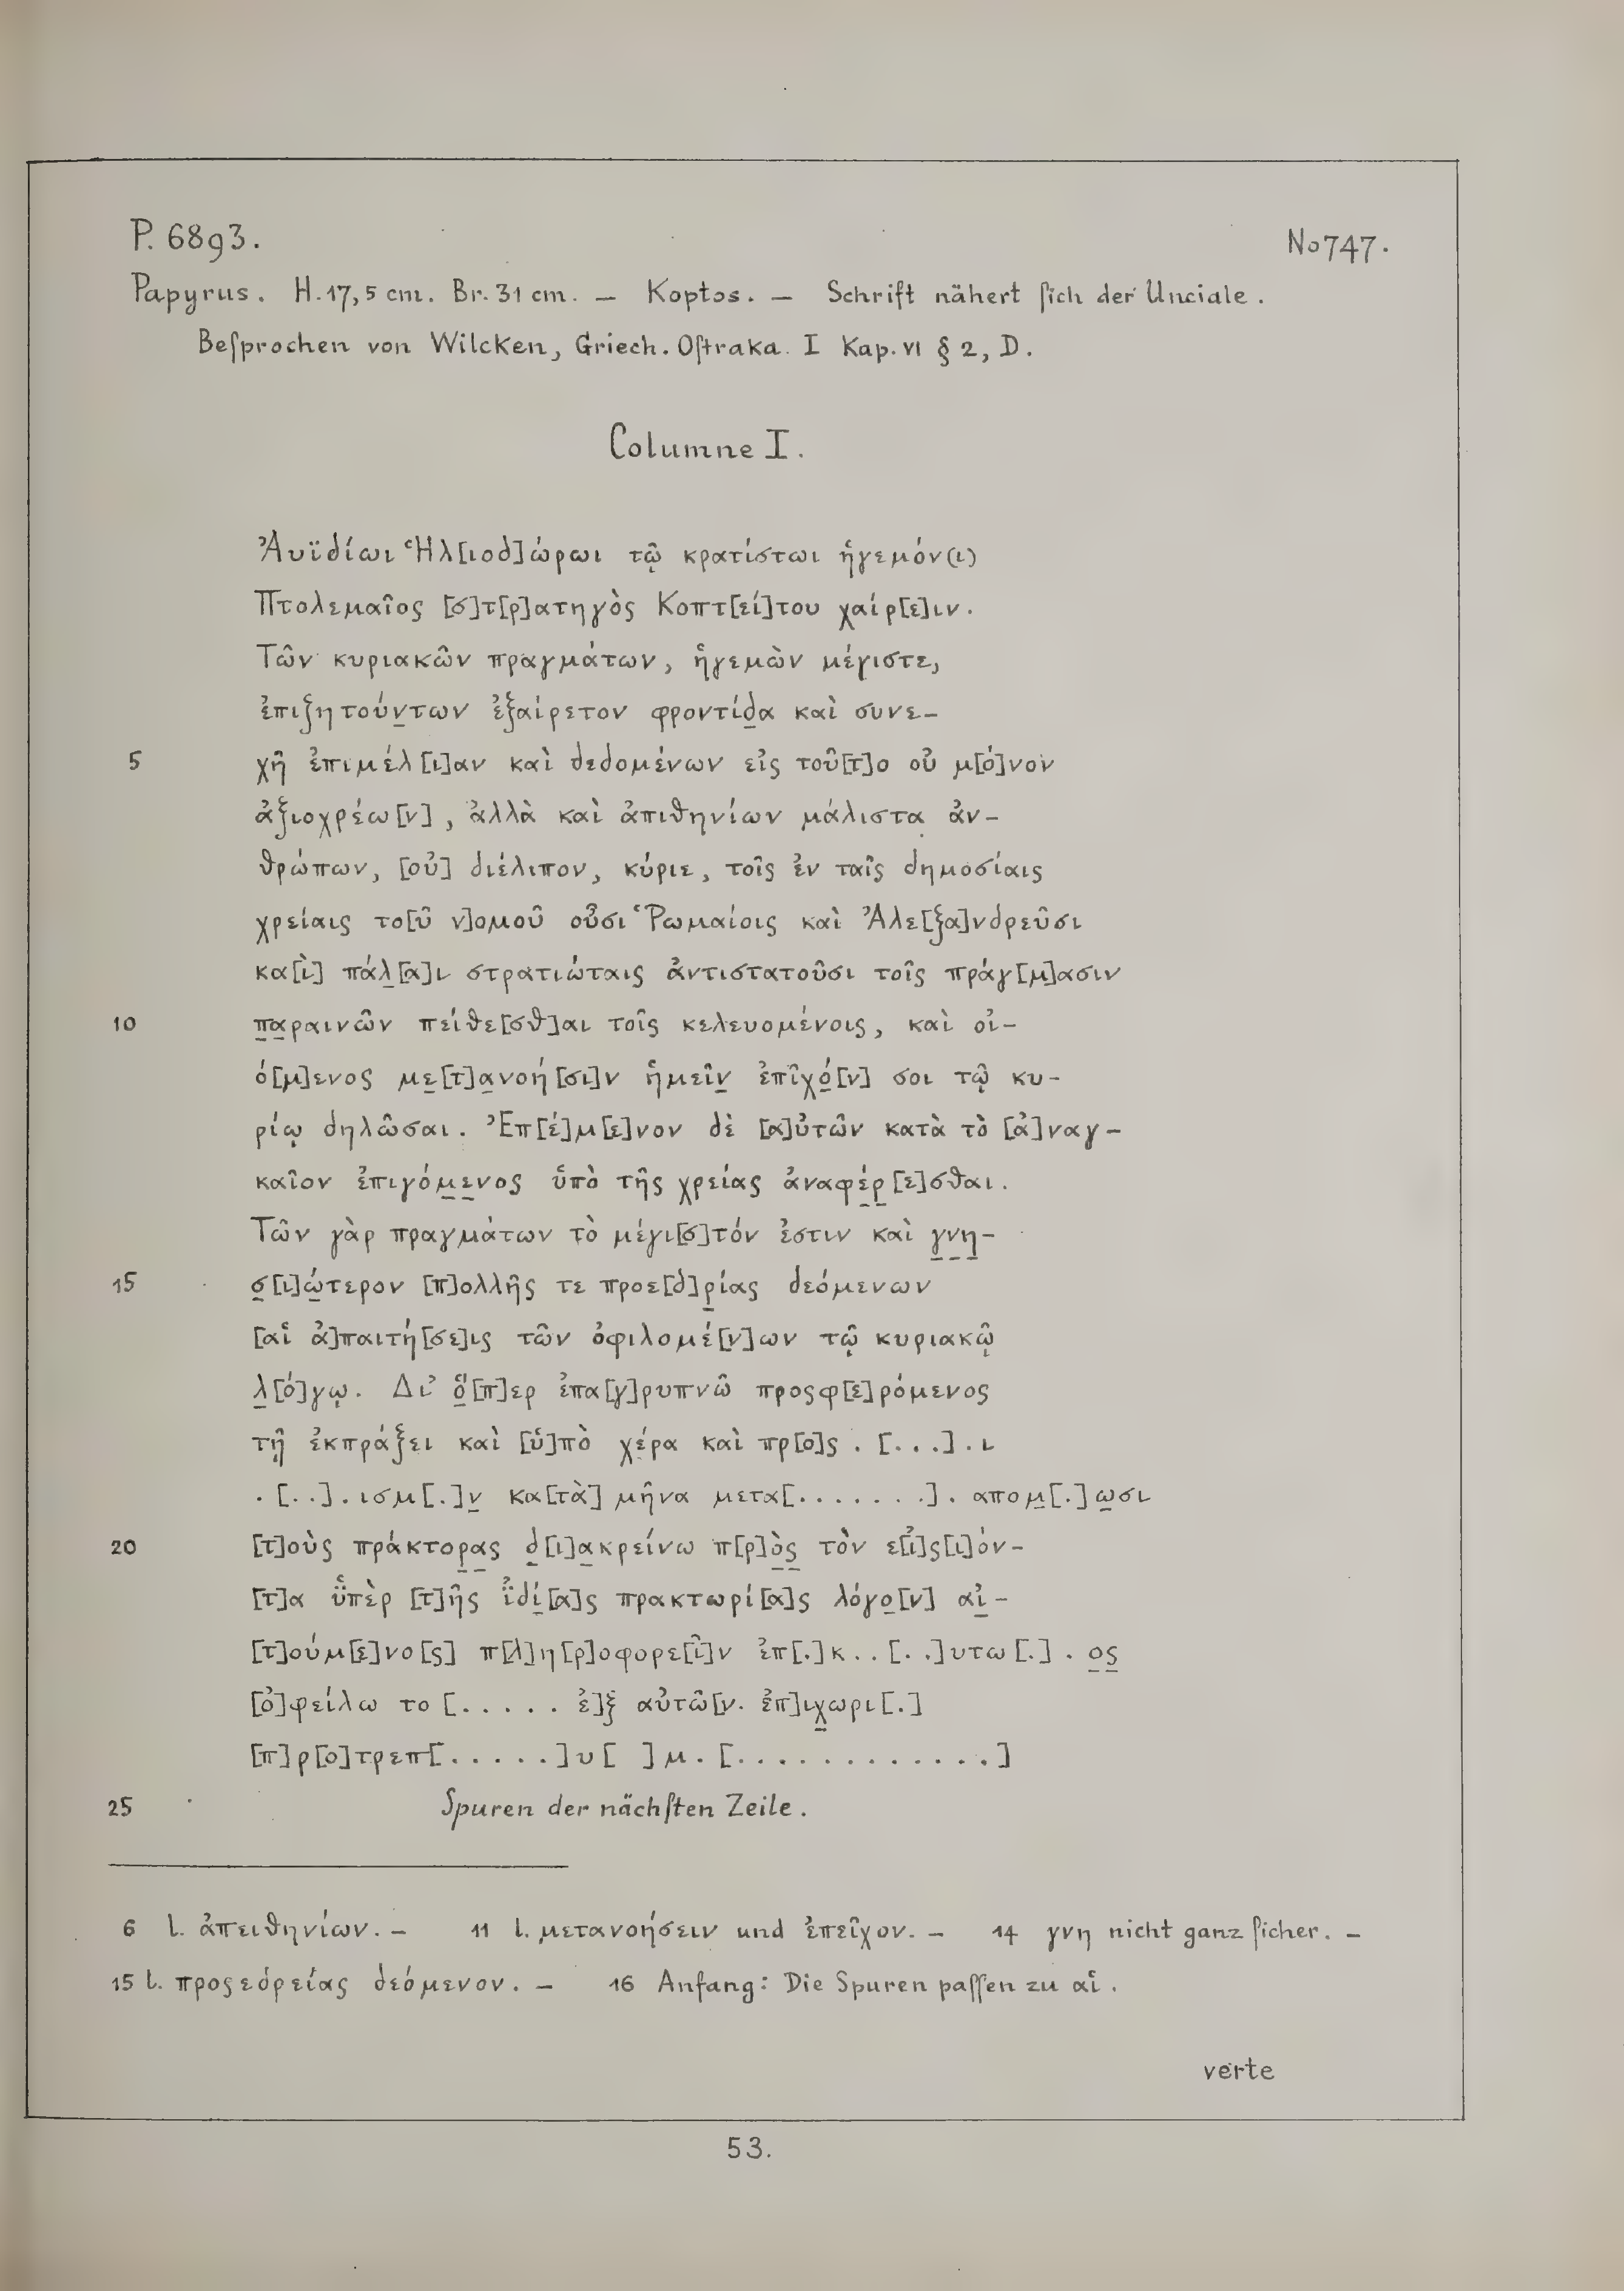 P. 6893.
No 747.
Papyrus. H. 17,5 cm. Br. 31 cm. — Koptos. — Schrift nähert ſich der Unciale.
Beſprochen von Wilcken, Griech. Oſtraka I Kap. VI § 2, D.
Columne I.
Ἀυϊδίωι Ἡλ[ιοδ]ώρωι τῷ κρατίστωι ἡγεμόν(ι)
Πτολεμαῖος [σ]τ[ρ]ατηγὸς Κοπτ[εί]του χαίρ[ε]ιν.
Τῶν κυριακῶν πραγμάτων, ἡγεμὼν μέγιστε,
ἐπιζητούν̣των ἐξαίρετον φροντίδ̣α καὶ συνε-
5 χῆ ἐπιμέλ[ι]αν καὶ δεδομένων εἰς τοῦ[τ]ο οὐ μ[ό]νον
ἀξιοχρέω[ν], ἀλλὰ καὶ ἀπιθηνίων μάλιστα ἀν-
θρώπων, [οὐ] διέλιπον, κύριε, τοῖς ἐν ταῖς δημοσίαις
χρείαις το[ῦ ν]ομοῦ οὖσι Ῥωμαίοις καὶ Ἀλε[ξα]νδρεῦσι
κα[ὶ] πάλ̣[α]ι στρατιώταις ἀντιστατοῦσι τοῖς πράγ[μ]ασιν
10 π̣α̣ραινῶν πείθε[σθ]αι τοῖς κελευομένοις, καὶ οἰ-
ό[μ]ενος με̣[τ]α̣νοή[σι]ν ἡμεῖν̣ ἐπῖχό̣[ν] σοι τῷ κυ-
ρίῳ δηλῶσαι. Ἐπ[έ]μ[ε]νον δὲ [α]ὐτῶν κατὰ τὸ [ἀ]ναγ-
καῖον ἐπιγόμ̣ε̣νος ὑπὸ τῆς χρείας ἀναφέ̣ρ̣[ε]σθαι.
Τῶν γὰρ πραγμάτων τὸ μέγι[σ]τόν ἐστιν καὶ γ̣ν̣η̣-
15 σ̣[ι]ώ̣τερον [π]ολλῆς τε προε[δ]ρ̣ίας δεόμενων
[αἱ ἀ]παιτή[σε]ις τῶν ὀφιλομέ[ν]ων τῷ κυριακῷ
λ̣[ό]γῳ. Δι’ ὅ̣[π]ερ ἐπα[γ]ρυπνῶ προςφ[ε]ρόμενος
τῇ ἐκπράξει καὶ [ὑ]πὸ χέρα καὶ πρ[ο]ς . [. . .] . ι
. [. .] . ισμ[.]ν̣ κα[τὰ] μῆνα μετα[. . . . . . .] . απομ̣[.]ω̣σι
20 [τ]οὺς πράκτορ̣α̣ς δ̣[ι]α̣κρείνω π[ρ]ὸ̣ς̣ τὸν ε[ἰ]ς[ι]όν-
[τ]α ὑ̈πὲρ [τ]ῆς ἰ̈δί̣[α]ς πρακτωρί[α]ς λόγο̣[ν] αἰ̣-
[τ]ούμ[ε]νο[ς] π[λ]η[ρ]οφορε[ῖ]ν ἐπ[.]κ . . [. .]υτω[.] . ο̣ς̣
[ὀ]φείλω το [. . . . . ἐ]ξ αὐτῶ[ν. ἐπ]ιχ̣ωρι[.]
[π]ρ[ο]τρεπ[. . . . .]υ[ ]μ . [. . . . . . . . . . . .]
25 Spuren der nächſten Zeile.
6 l. ἀπειθηνίων. — 11 l. μετανοήσειν und ἐπεῖχον. — 14 γνη nicht ganz ſicher. —
15 l. προςεδρείας δεόμενον. — 16 Anfang: Die Spuren paſſen zu αἱ.
verte
53.